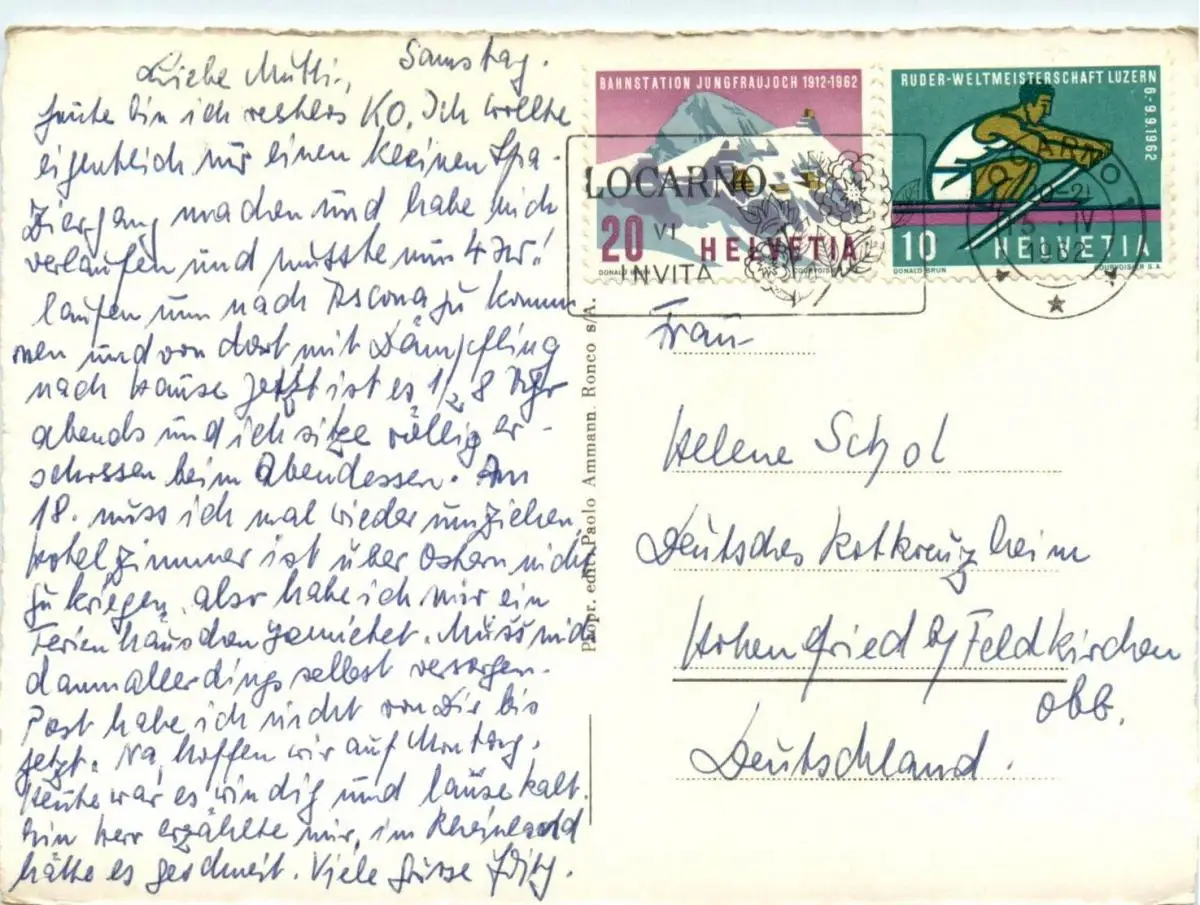 Samstag.
Liebe Mutti,
heute bin ich restlos KO. Ich wollte
eigentlich nur einen kleinen Spa-
ziergang machen und habe mich
verlaufen und musste nun 4 Std.
laufen um nach Ascona zu kom-
men und von dort mit Dämpfling
nach Hause jetzt ist es 1/2 8 Uhr
abends und ich sitze völlig er-
schossen beim Abendessen. Am
18. muss ich mal wieder umziehen,
Hotelzimmer ist über Ostern nicht
zu kriegen, also habe ich mir ein
Ferienhäuschen gemietet. Muss mich
dann allerdings selbst versorgen.
Post habe ich nicht von Dir bis
jetzt. Na, hoffen wir auf Montag.
Heute war es windig und lausekalt.
Ein Herr erzählte mir, im Rheinland
hätte es geschneit. Viele Grüsse
Propr. edit. Paolo Ammann. Ronco s/A.
BAHNSTATION JUNGFRAUJOCH 1912-1962
20 HELVETIA
DONALD BRUN COURVOISIER
RUDER-WELTMEISTERSCHAFT LUZERN 6.-9.9.1962
10 HELVETIA
DONALD BRUN COURVOISIER S.A.
LOCARNO
VI
INVITA
LOCARNO
IV
1962
Frau
Helene Schol
Deutsches Rotkreuzheim
Hohenfried b/ Feldkirchen
Obb.
Deutschland.